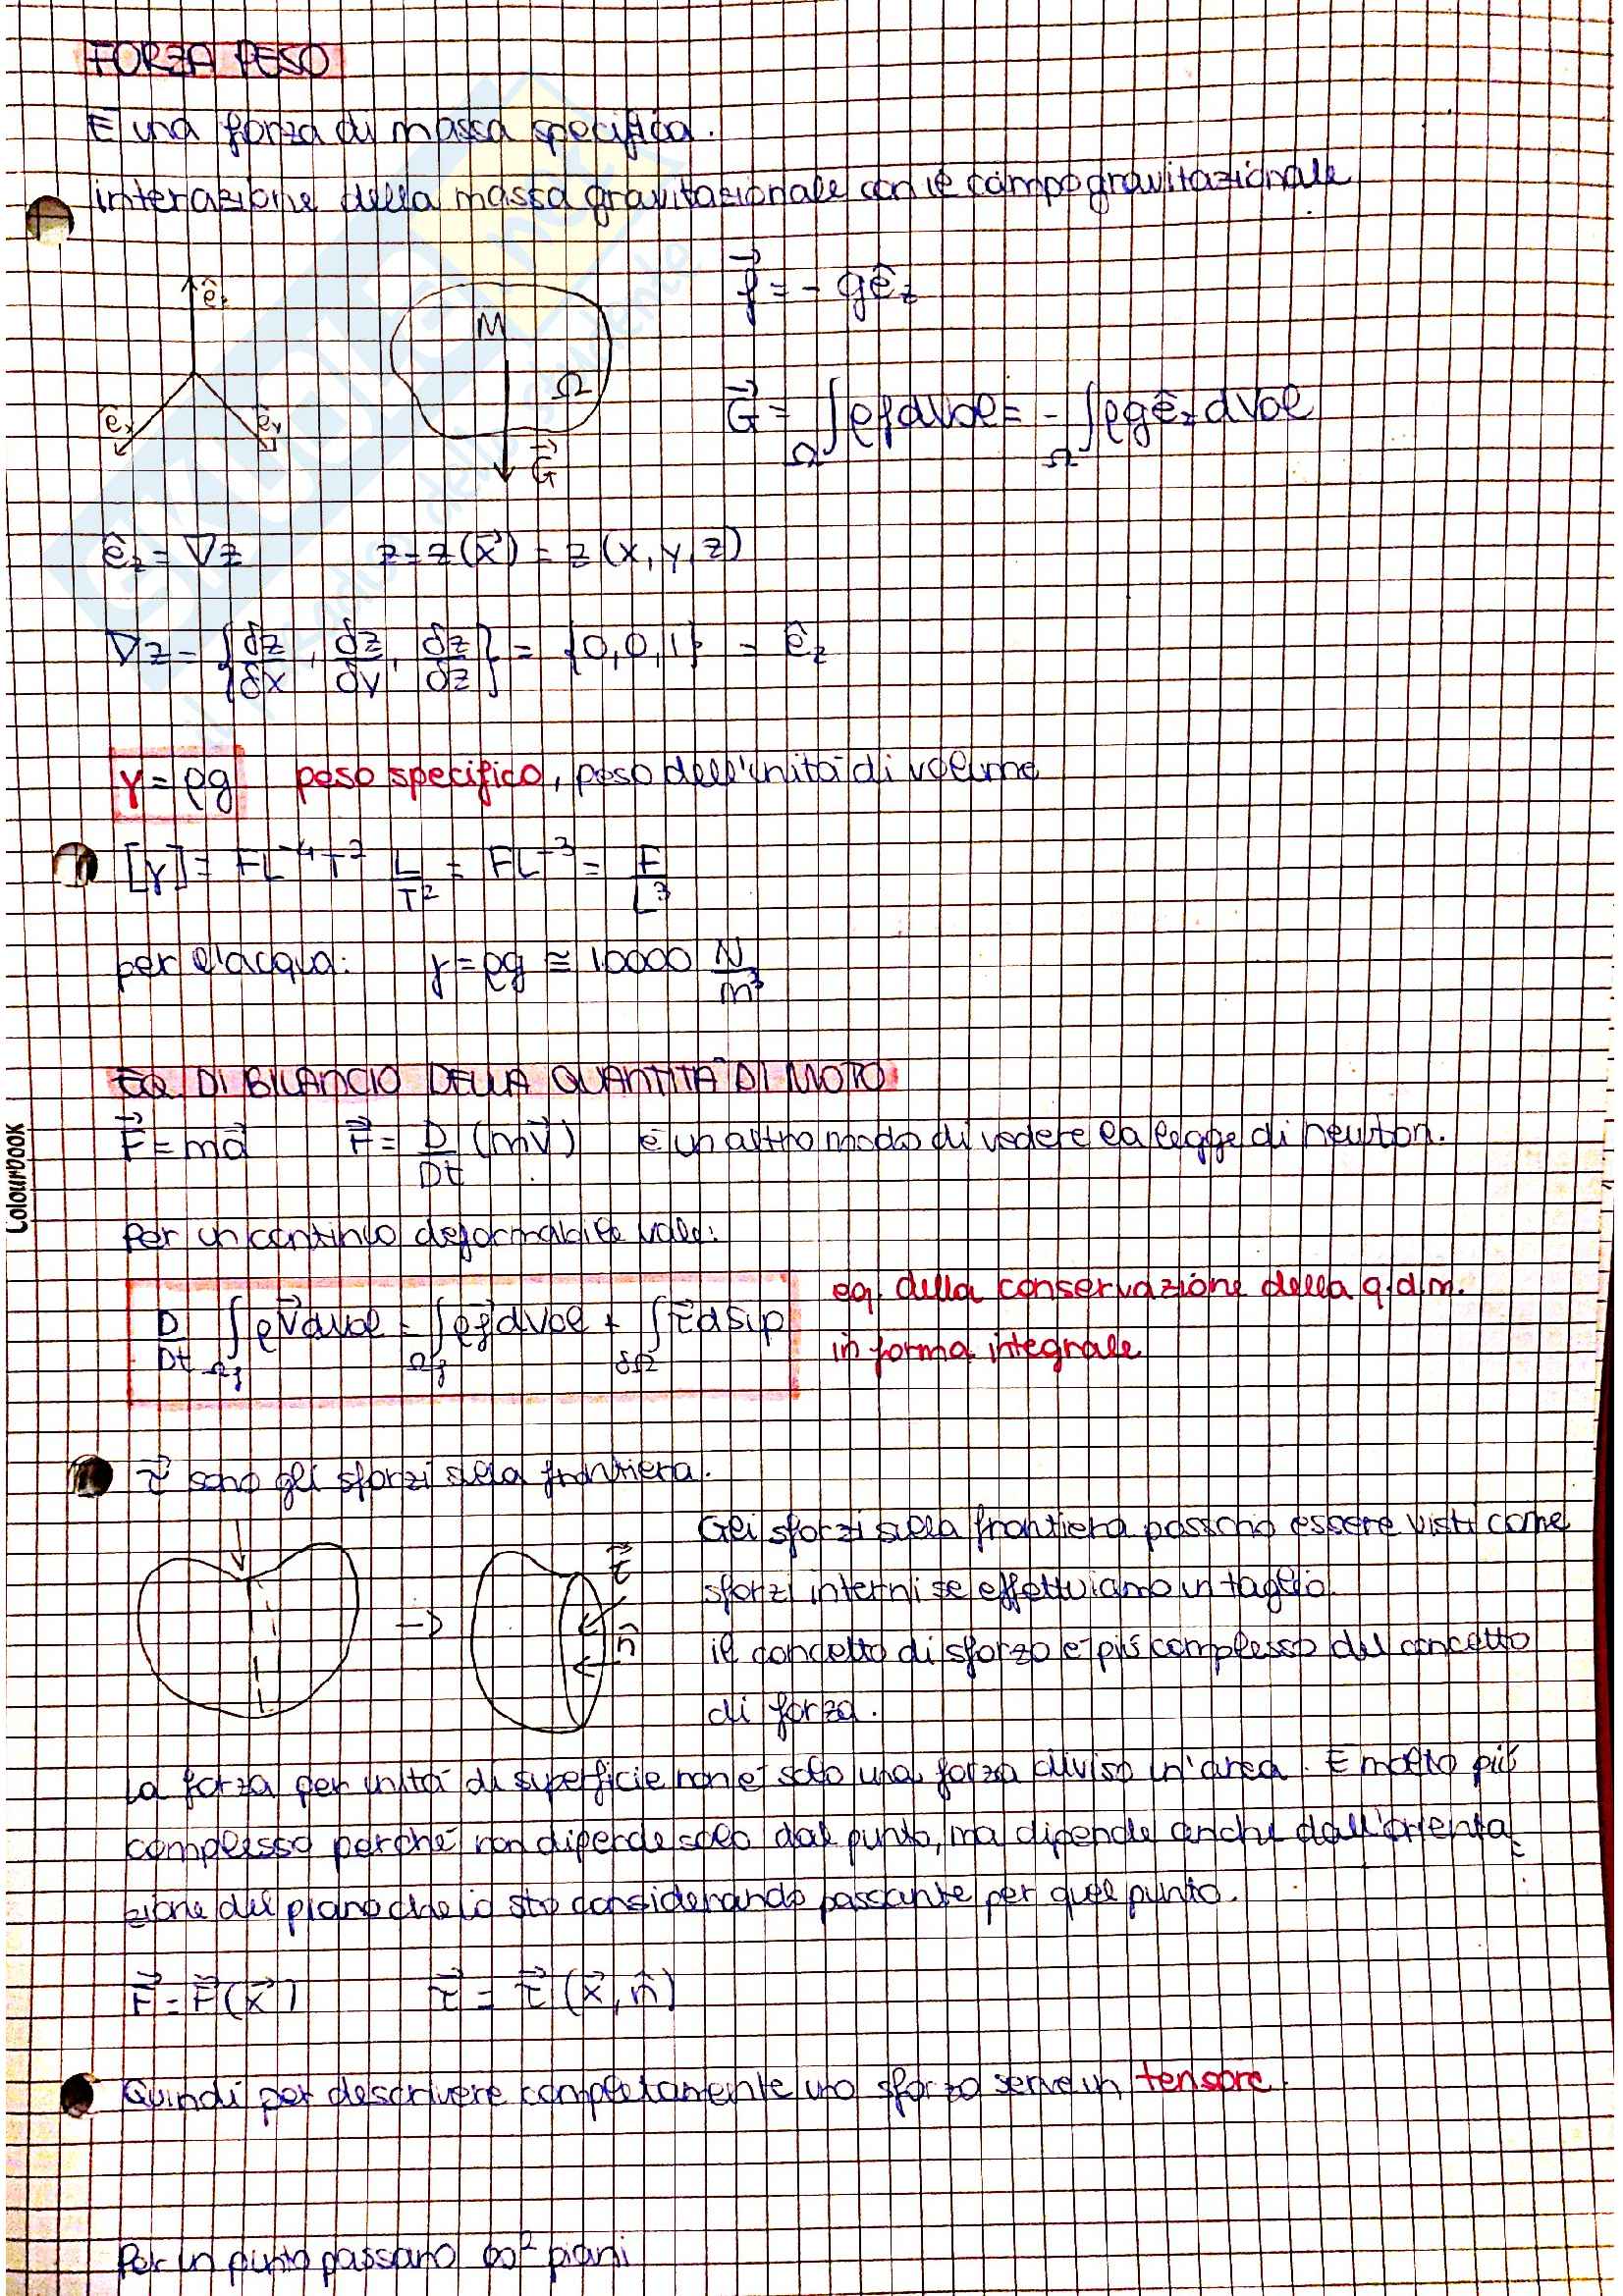 FORZA PESO
È una forza di massa specifica.
interazione della massa gravitazionale con il campo gravitazionale
ê_z
ê_x
ê_y
M
Ω
G⃗
f⃗ = - gê_z
G⃗ = ∫_Ω ρf dvol = - ∫_Ω ρgê_z dvol
ê_z = ∇z z = z(x⃗) = z(x, y, z)
∇z = {δz/δx, δz/δy, δz/δz} = {0, 0, 1} = ê_z
γ = ρg peso specifico, peso dell'unità di volume
[γ] = FL⁻⁴T² L/T² = FL⁻³ = F/L³
per l'acqua: γ = ρg ≅ 10000 N/m³
EQ. DI BILANCIO DELLA QUANTITÀ DI MOTO
F⃗ = ma⃗ F⃗ = D/Dt (mv⃗) è un altro modo di vedere la legge di newton.
Per un continuo deformabile vale:
D/Dt ∫_Ωf ρv⃗ dvol = ∫_Ωf ρf⃗ dvol + ∫_δΩ τ⃗ dsup
eq. della conservazione della q.d.m.
in forma integrale
τ⃗ sono gli sforzi sulla frontiera.
Gli sforzi sulla frontiera possono essere visti come
sforzi interni se effettuiamo un taglio.
il concetto di sforzo è più complesso del concetto
di forza.
τ⃗
n̂
La forza per unità di superficie non è solo una forza diviso un'area. È molto più
complesso perché non dipende solo dal punto, ma dipende anche dall'orienta
zione del piano che io sto considerando passante per quel punto.
F⃗ = F⃗(x⃗) τ⃗ = τ⃗(x⃗, n̂)
Quindi per descrivere completamente uno sforzo serve un tensore.
Per un punto passano ∞² piani
Colourbook
SKUOLA.net
il paradiso dello studente